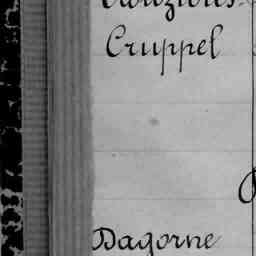 Cruppel
Dagorne